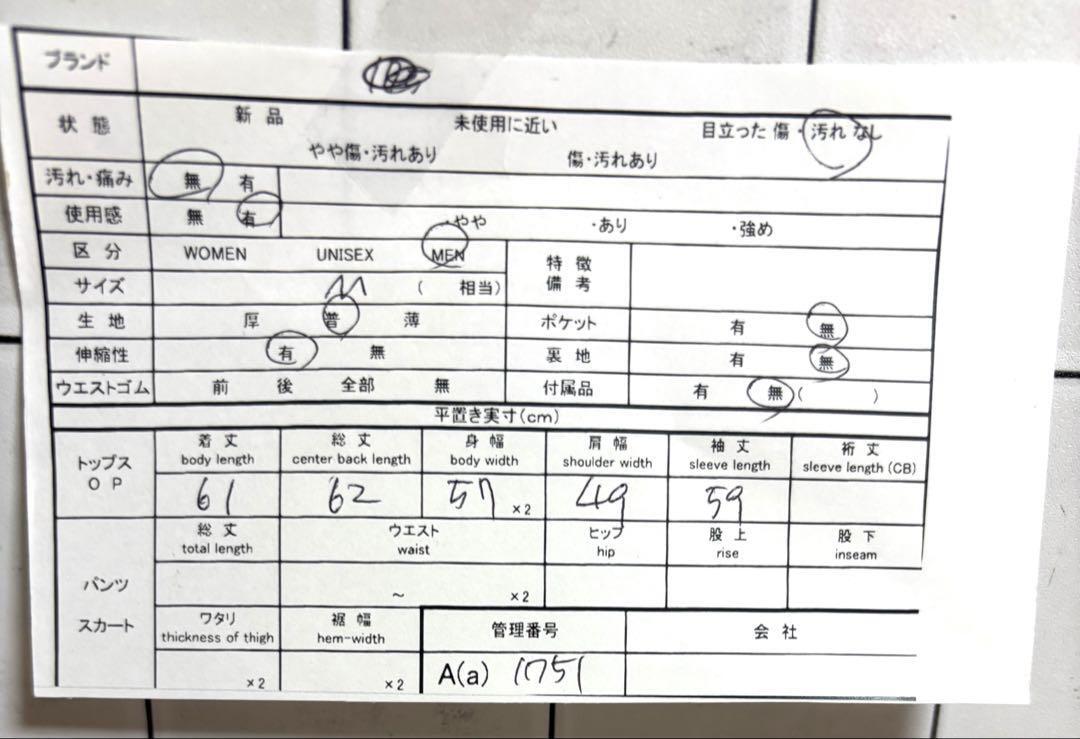 ブランド
状態 新品 未使用に近い 目立った傷・汚れなし
やや傷・汚れあり 傷・汚れあり
汚れ・痛み 無 有
使用感 無 有 ・やや ・あり ・強め
区分 WOMEN UNISEX MEN 特徴備考
サイズ M ( 相当)
生地 厚 普 薄 ポケット 有 無
伸縮性 有 無 裏地 有 無
ウエストゴム 前 後 全部 無 付属品 有 無( )
平置き実寸(cm)
トップス OP 着丈 総丈 身幅 肩幅 袖丈 裄丈
body length center back length body width shoulder width sleeve length sleeve length (CB)
61 62 57 ×2 49 59
総丈 ウエスト ヒップ 股上 股下
total length waist hip rise inseam
パンツ ~ ×2
スカート ワタリ 裾幅 管理番号 会社
thickness of thigh hem-width
×2 ×2 A(a) 1751